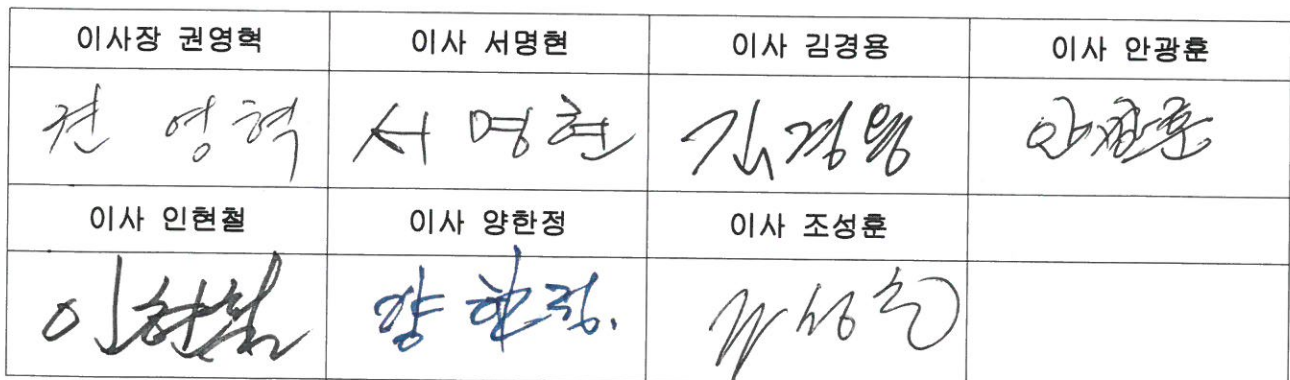 이사장 권영혁 이사 서명현 이사 김경용 이사 안광훈
권 영 혁 서 명 현 김경용 안광훈
이사 인현철 이사 양한정 이사 조성훈
인현철 양한정. 조성훈